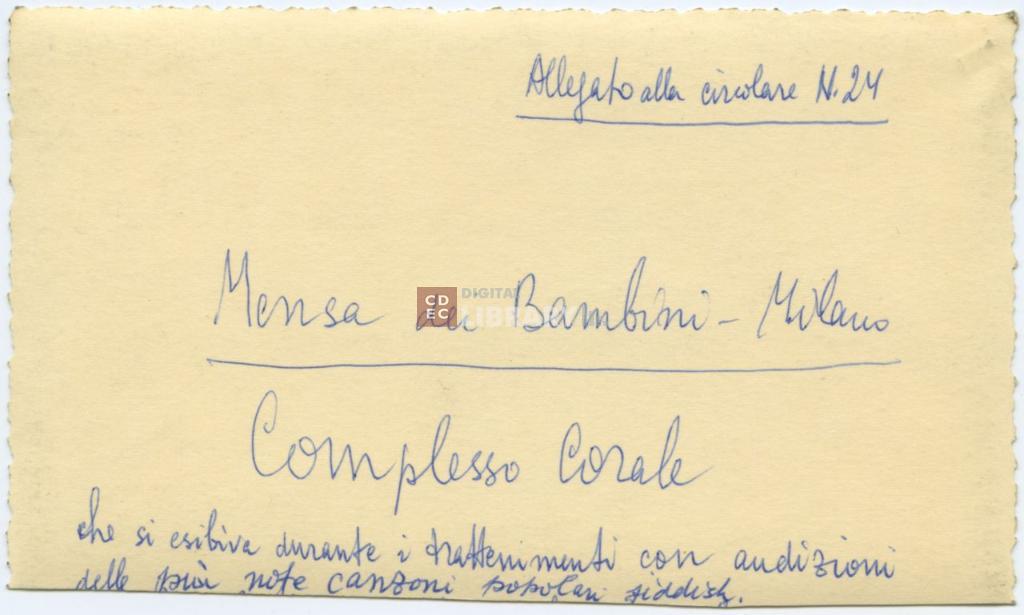 Allegato alla circolare N. 24
Mensa dei Bambini - Milano
CDEC DIGITAL LIBRARY
Complesso Corale
che si esibiva durante i trattenimenti con audizioni
delle più note canzoni popolari jiddish.